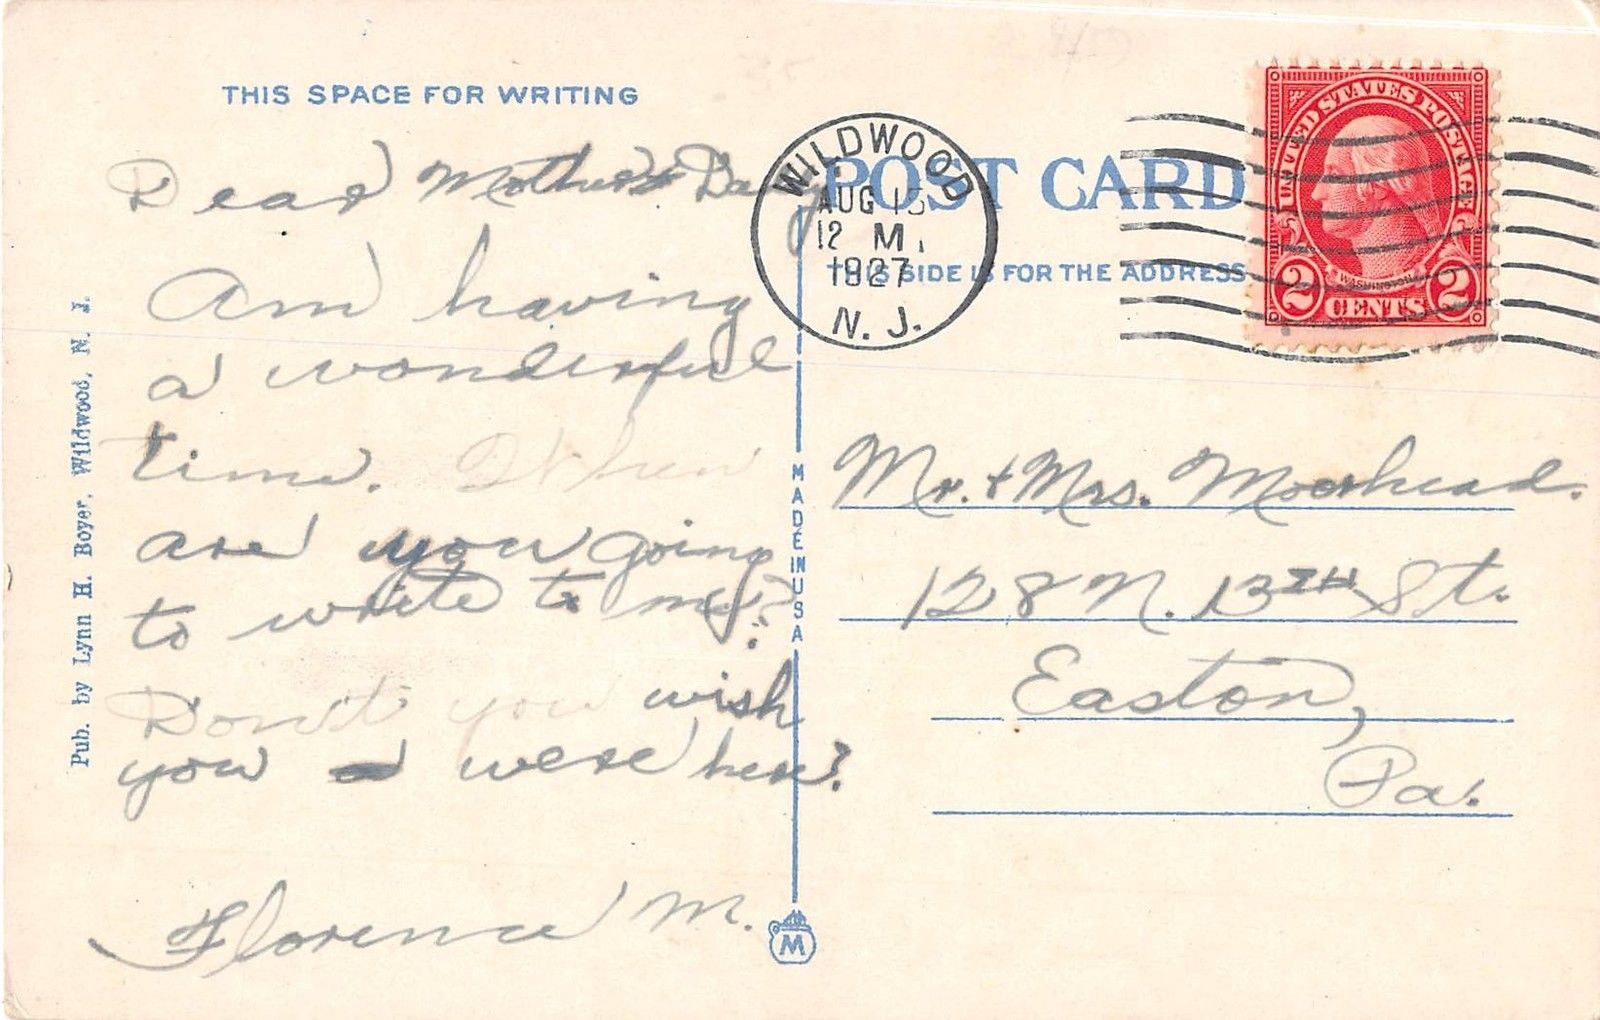 THIS SPACE FOR WRITING
Dear Mother & Day
Am having
a wonderful
time. When
are you going
to write to me?
Don't you wish
you were here?
Florence M.
Pub. by Lynn H. Boyer, Wildwood, N. J.
MADE IN USA
M
POST CARD
THIS SIDE IS FOR THE ADDRESS
WILDWOOD
AUG 15
12 M.
1927
N. J.
UNITED STATES POSTAGE
WASHINGTON
2 CENTS 2
Mr. & Mrs. Moorhead.
128 N. 13TH St.
Easton,
Pa.